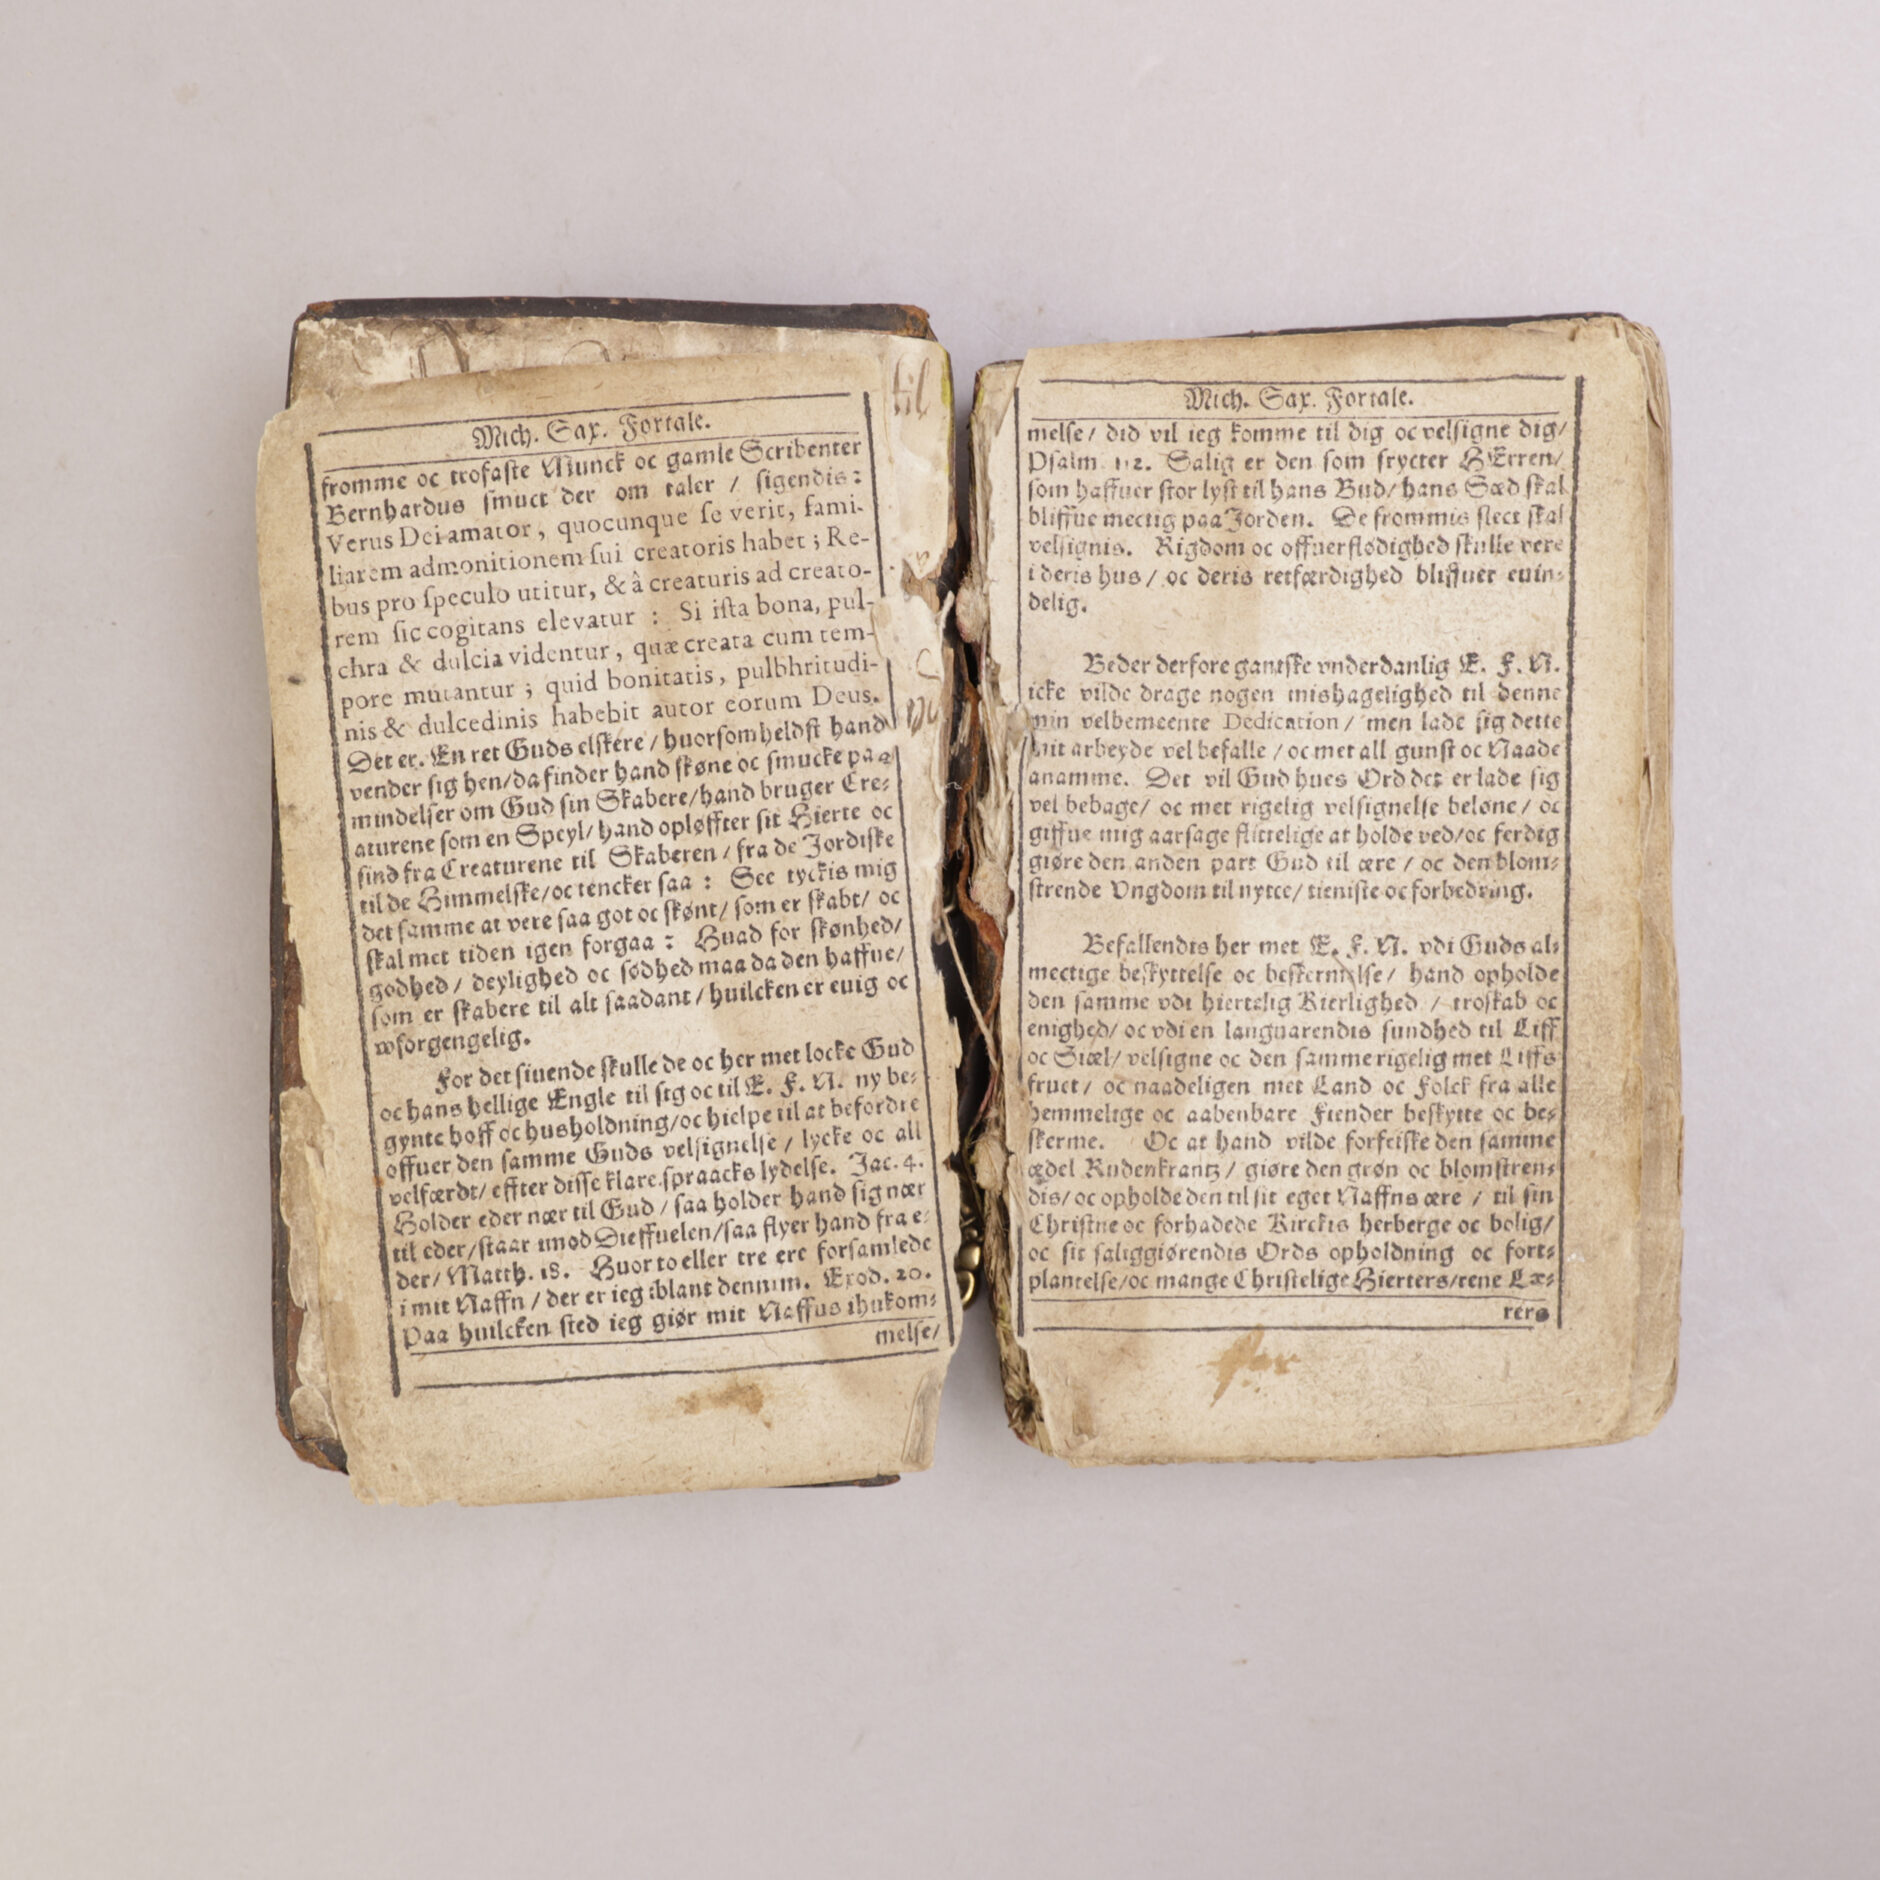 Mich. Sax. Fortale.
fromme oc trofaste Munck oc gamle Scribenter
Bernhardus smuct der om taler / sigendis:
Verus Dei amator, quocunque se verit, fami-
liarem admonitionem sui creatoris habet; Re-
bus pro speculo utitur, & â creaturis ad creato-
rem sic cogitans elevatur : Si ista bona, pul-
chra & dulcia videntur, quæ creata cum tem-
pore mutantur ; quid bonitatis, pulbhritudi-
nis & dulcedinis habebit autor eorum Deus.
Det er. En ret Guds elskere / huorsomheldst hand
vender sig hen/da finder hand skøne oc smucke paa
mindelser om Gud sin Skabere/hand bruger Cre-
aturene som en Speyl/ hand opløffter sit Hierte oc
sind fra Creaturene til Skaberen / fra de Jordiske
til de Himmelske/oc tencker saa : See tyckis mig
det samme at vere saa got oc skønt/ som er skabt/ oc
skal met tiden igen forgaa : Huad for skønhed/
godhed / deylighed oc sødhed maa da den haffue/
som er skabere til alt saadant / huilcken er euig oc
wforgengelig.
For det siuende skulle de oc her met locke Gud
oc hans hellige Engle til sig oc til E. F. N. ny be-
gynte hoff oc husholdning/oc hielpe til at befordre
offuer den samme Guds velsignelse / lycke oc all
velfærdt/ effter disse klare spraacks lydelse. Jac. 4.
Holder eder nær til Gud / saa holder hand sig nær
til eder/staar imod Dieffuelen/saa flyer hand fra e-
der/ Matth. 18. Huor to eller tre ere forsamlede
i mit Naffn / der er ieg iblant dennum. Exod. 20.
Paa huilcken sted ieg giør mit Naffus ihukom-
melse/
til
Mich. Sax. Fortale.
melse/ did vil ieg komme til dig oc velsigne dig/
Psalm. 112. Salig er den som frycter HErren/
som haffuer stor lyst til hans Bud/ hans Sæd skal
bliffue mectig paa Jorden. De frommis slect skal
velsignis. Rigdom oc offuerflødighed skulle vere
i deris hus / oc deris retfærdighed bliffuer euin-
delig.
Beder derfore gantske vnderdanlig E. F. N.
icke vilde drage nogen mishagelighed til denne
min velbemeente Dedication / men lade sig dette
mit arbeyde vel befalle / oc met all gunst oc Naade
anamme. Det vil Gud hues Ord det er lade sig
vel behage/ oc met rigelig velsignelse beløne / oc
giffue mig aarsage flittelige at holde ved/oc ferdig
giøre den anden part Gud til ære / oc den blom-
strende Vngdom til nytte/ tieniste oc forbedring.
Befallendis her met E. F. N. vdi Guds al-
mectige beskyttelse oc beskermelse/ hand opholde
den samme vdi hiertelig Kierlighed / troskab oc
enighed/ oc vdi en languarendis sundhed til Liff
oc Siæl/ velsigne oc den samme rigelig met Liffs
fruct / oc naadeligen met Land oc Folck fra alle
hemmelige oc aabenbare Fiender beskytte oc be-
skerme. Oc at hand vilde forfriske den samme
ædel Rudenkrantz / giøre den grøn oc blomstren-
dis/ oc opholde den til sit eget Naffns ære / til sin
Christne oc forhadede Kirckis herberge oc bolig/
oc sit saliggiørendis Ords opholdning oc fort-
plantelse/oc mange Christelige Hierters/rene Læ-
rers